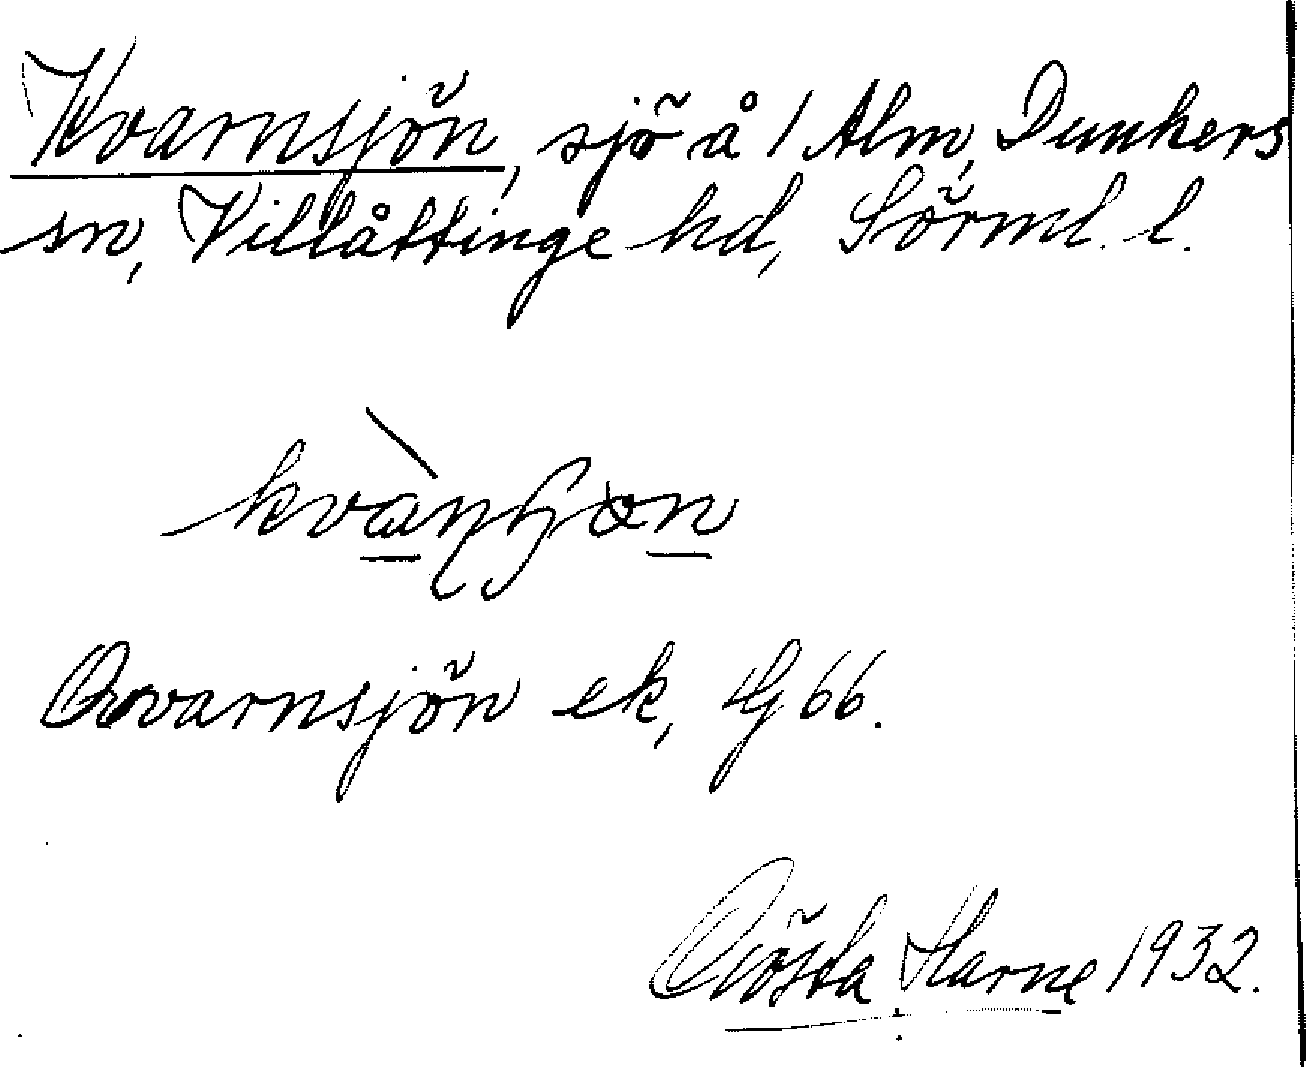 Kvarnsjön, sjö å 1 Alm, Dunkers
sn, Villåttinge hd, Sörml. l.
Qvarnsjön ek, 66.
Gösta 1932.